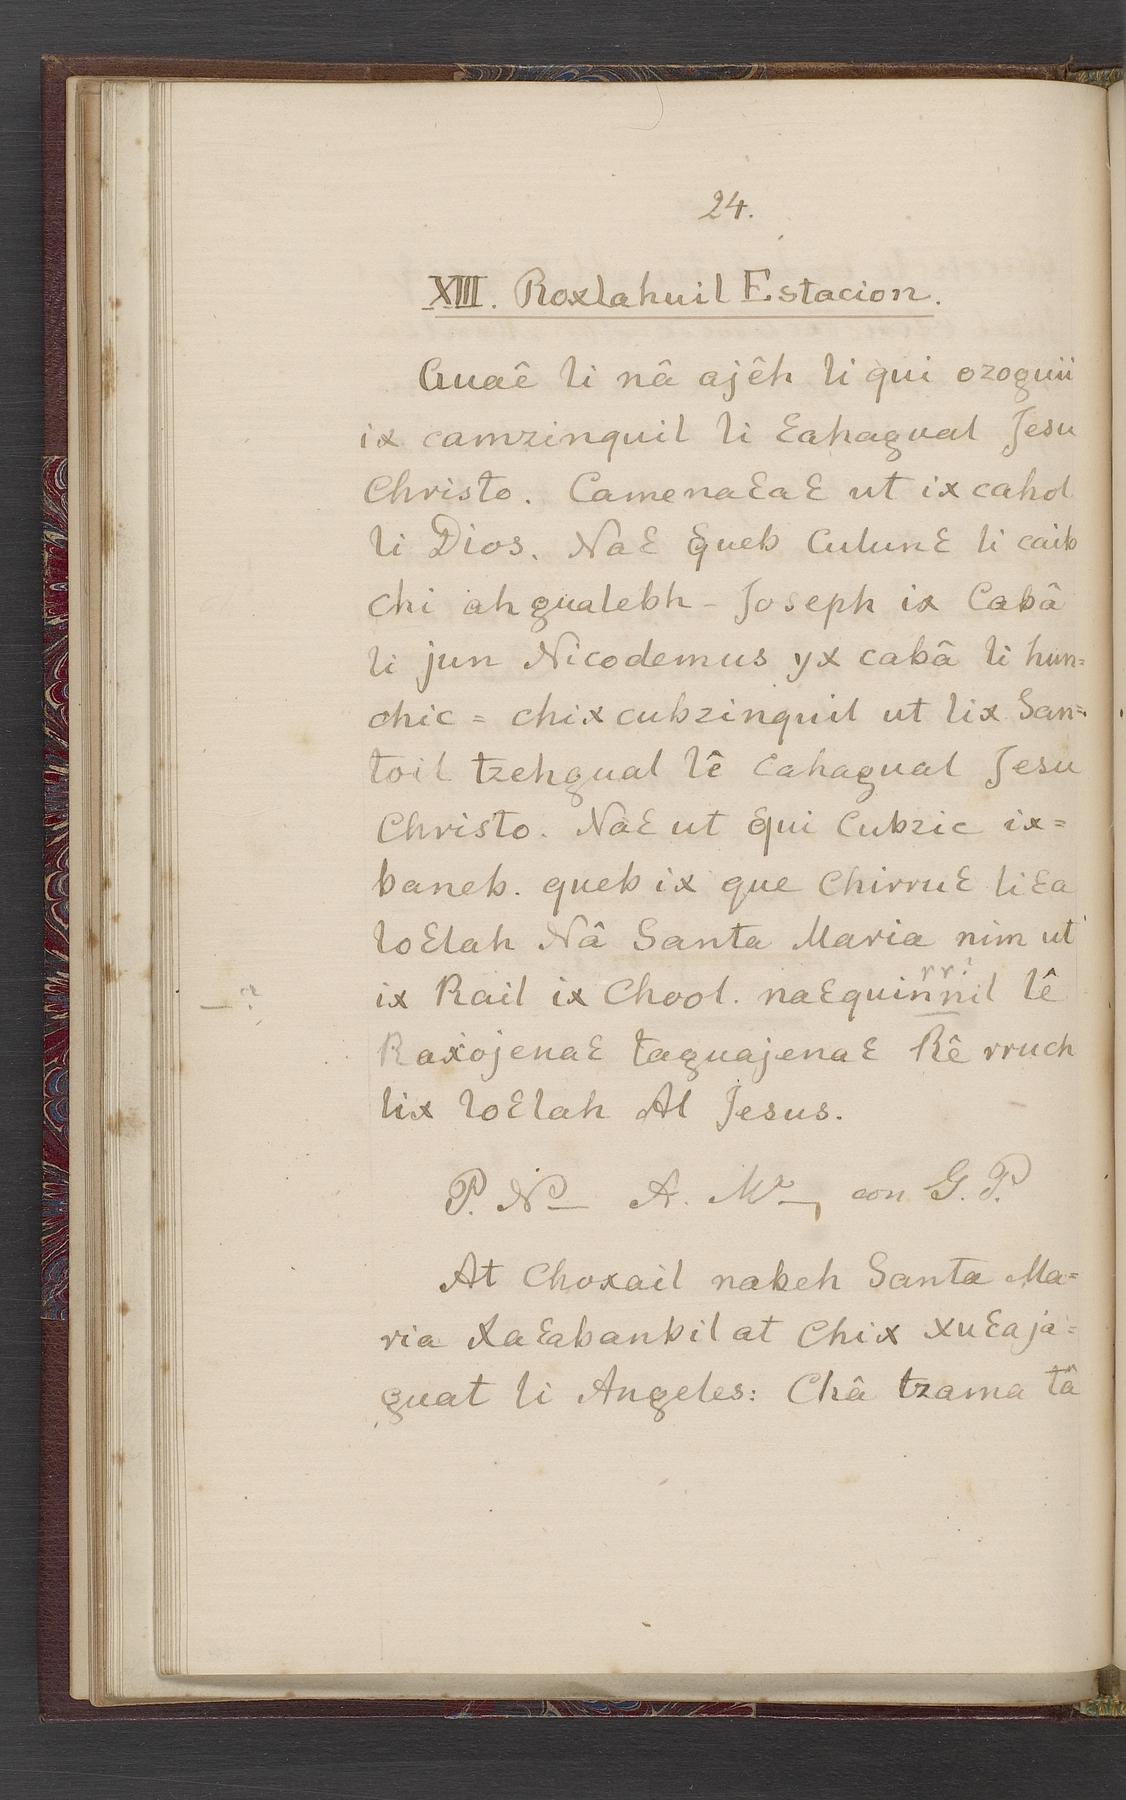 24.
XIII. Roxlahuil Estacion.
Guaê li nâ ajêh li qui ozoguii
ix camzinquil li Ɛahagual Jesu
Christo. CamenaƐaƐ ut ix cahol
li Dios. NaƐ queb CulunƐ li caib
chi ah gualebh - Joseph ix Cabâ
li jun Nicodemus yx cabâ li hun=
chic = chix cubzinquil ut lix San=
toil tzehgual lê Cahagual Jesu
Christo. NaƐ ut qui Cubzic ix=
baneb. queb ix que ChirruƐ li Ɛa
loƐlah Nâ Santa Maria nim ut
ix Rail ix Chool. naƐquinnil lê
rr?
— ?
RaxojenaƐ taguajenaƐ Rê rruch
lix loƐlah Al Jesus.
P. N— A. Mª—, con G. P.
At Choxail nabeh Santa Ma=
ria XaƐabanbil at Chix xuƐaja=
guat li Angeles: Châ tzama tâ